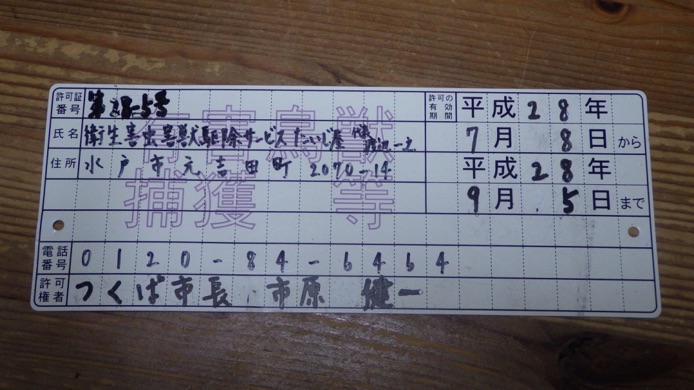 許可証番号 第28-55号
許可の有効期間 平成28年7月8日から平成28年9月5日まで
氏名 衛生害虫害獣駆除サービスたいじ屋 代表 渡辺一之
住所 水戸市元吉田町2070-14
有害鳥獣
捕獲等
電話番号 0120-84-6464
許可権者 つくば市長 市原 健一